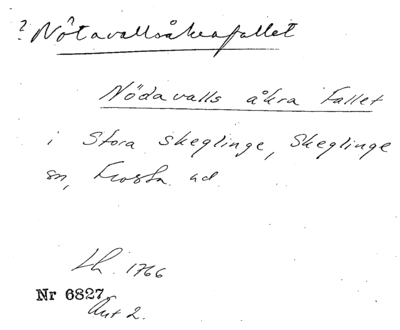 ? Nötavallsåkrafallet
Nödavalls åkra Fallet
i Stora Skeglinge, Skeglinge
sn, Frosta hd
Lh. 1766
Nr 6827
Akt 2.